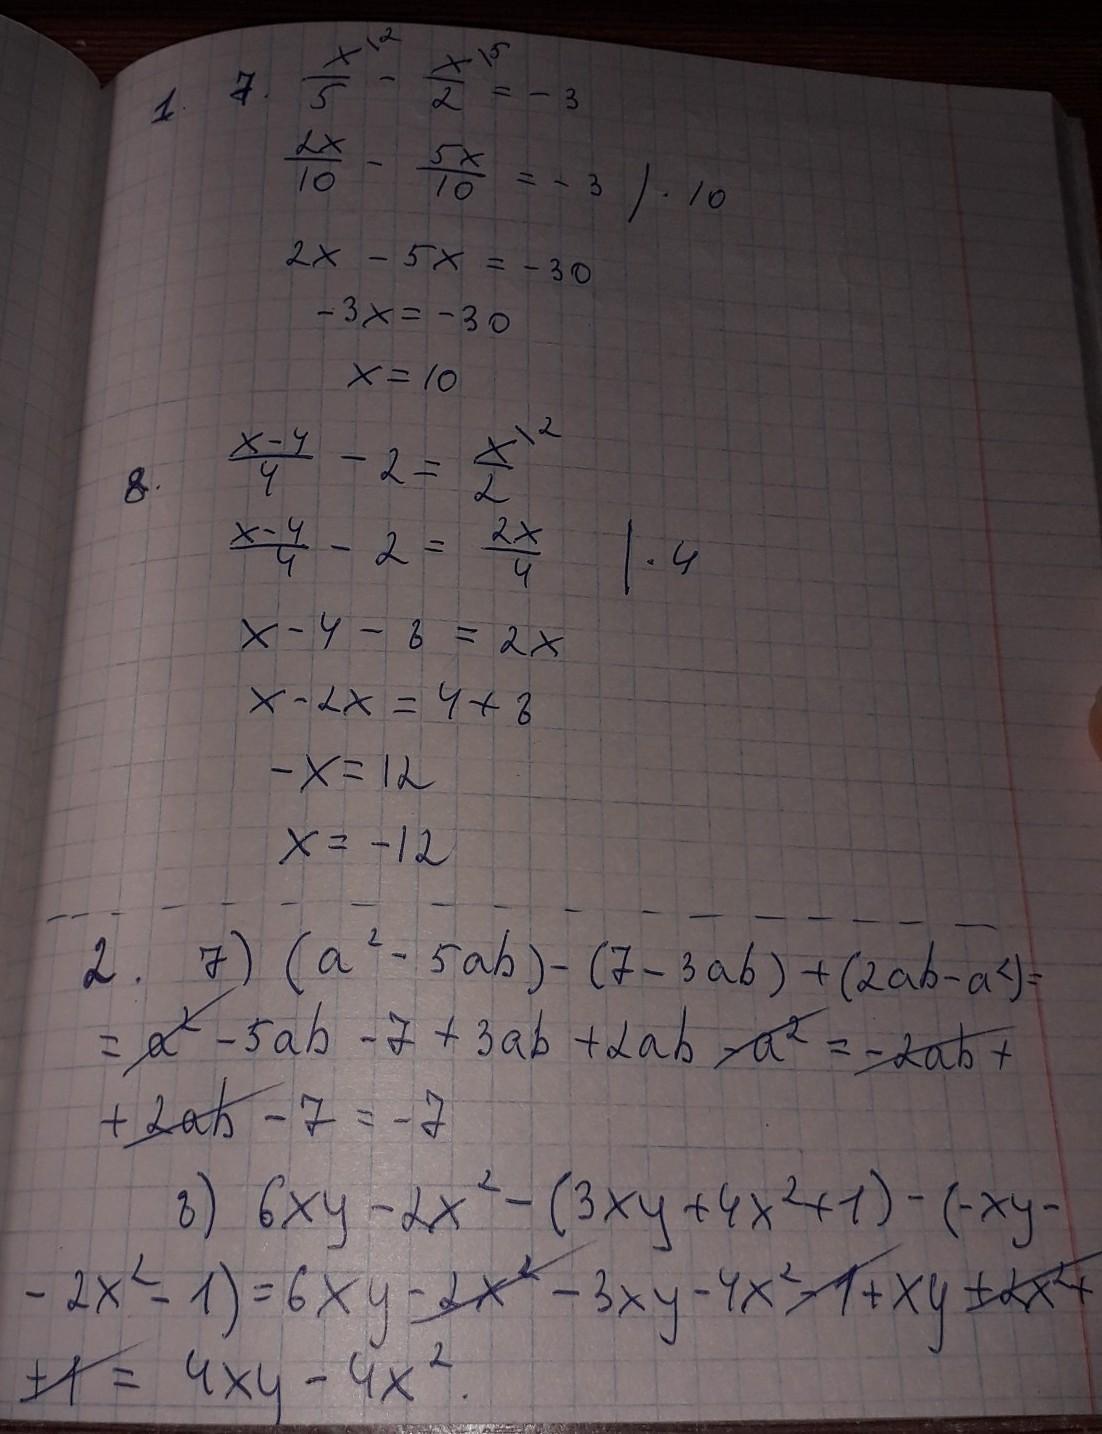 1. 7. x\2/5 - x\5/2 = -3
2x/10 - 5x/10 = -3 / · 10
2x - 5x = -30
-3x = -30
x = 10
8. x-4/4 - 2 = x\2/2
x-4/4 - 2 = 2x/4 | · 4
x - 4 - 8 = 2x
x - 2x = 4 + 8
-x = 12
x = -12
2. 7) (a² - 5ab) - (7 - 3ab) + (2ab - a²) =
= a² - 5ab - 7 + 3ab + 2ab - a² = -2ab +
+ 2ab - 7 = -7
8) 6xy - 2x² - (3xy + 4x² + 1) - (-xy -
- 2x² - 1) = 6xy - 2x² - 3xy - 4x² - 1 + xy + 2x² +
+ 1 = 4xy - 4x².